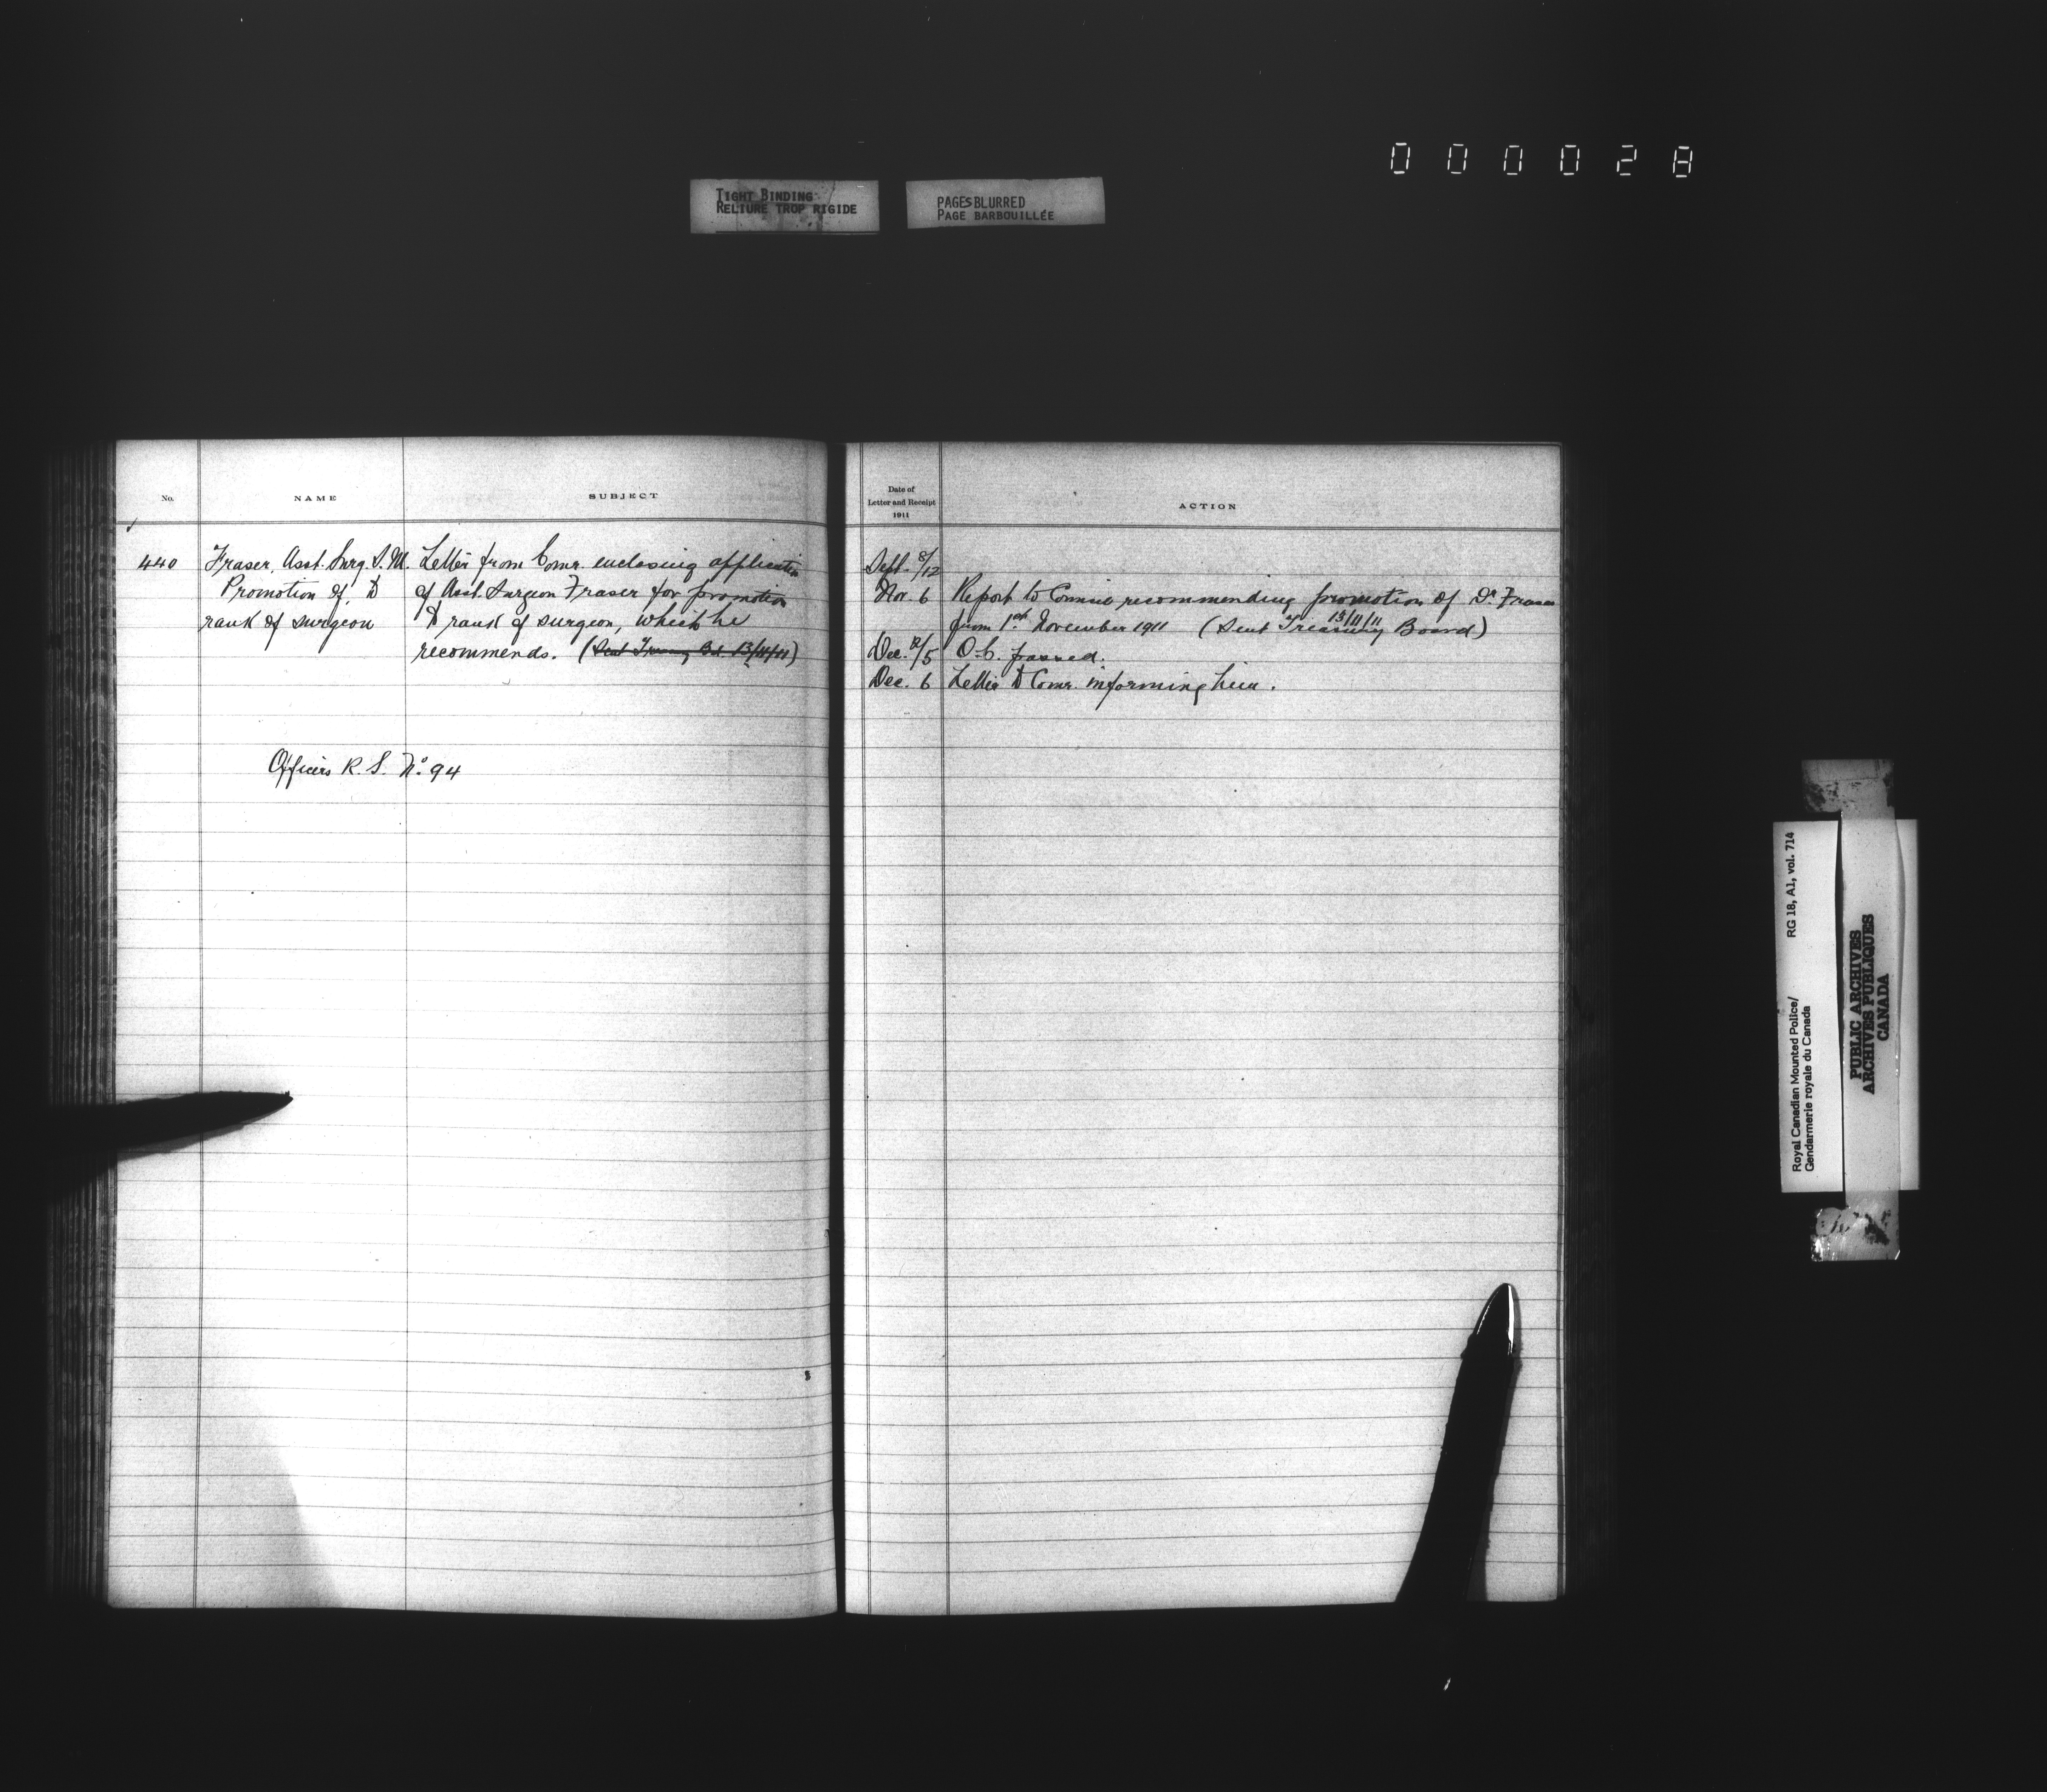 000028
TIGHT BINDING
RELIURE TROP RIGIDE
PAGES BLURRED
PAGE BARBOUILLÉE
No.
NAME
SUBJECT
440
Fraser, Asst. Surg. S. M.
Promotion of, to
rank of surgeon
Letter from Comr. enclosing application
of Asst. Surgeon Fraser for promotion
to rank of surgeon, which he
recommends. (Sent Treasury Bd. 13/11/11)
Officers R. S. No. 94
Date of
Letter and Receipt
1911
ACTION
Sept. 8/12
Nov. 6 Report to Council recommending promotion of Dr. Fraser
13/11/11
from 1st November 1911 (Sent Treasury Board)
Dec. /5 O.C. passed.
Dec. 6 Letter to Comr. informing him.
RG 18, A1, vol. 714
Royal Canadian Mounted Police/
Gendarmerie royale du Canada
PUBLIC ARCHIVES
ARCHIVES PUBLIQUES
CANADA